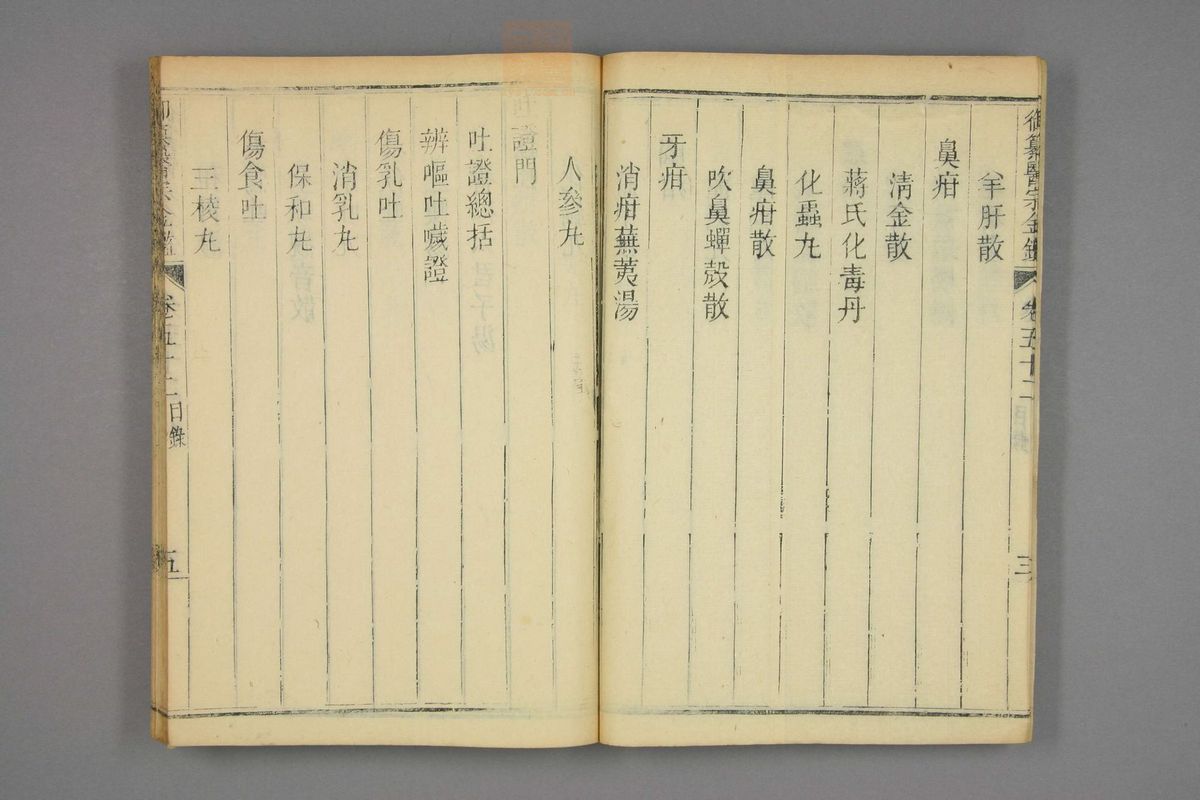 御纂醫宗金鑑
卷五十二
三
羊肝散
鼻疳
清金散
蔣氏化毒丹
化蟲丸
鼻疳散
吹鼻蟬殼散
牙疳
消疳蕪荑湯
人參丸
吐證門
吐證總括
辨嘔吐噦證
傷乳吐
消乳丸
保和丸
傷食吐
三棱丸
卷五十二
目錄
五